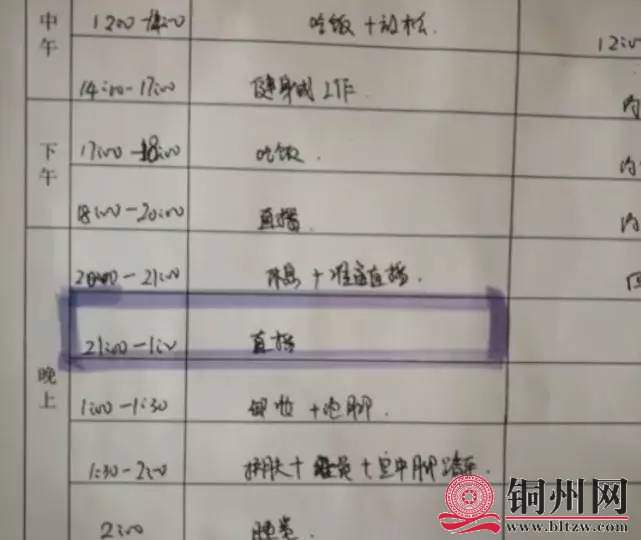 中午
12:00-14:00 吃饭+放松.
12:00
14:00-17:00 健身或工作.
内
下午
17:00-18:00 吃饭.
内
18:00-20:00 直播.
内
晚上
20:00-21:00 休息+准备直播.
21:00-1:00 直播
1:00-1:30 卸妆+泡脚.
1:30-2:00 护肤+ +空中脚踏车.
2:00 睡觉
铜州网
www.bltzw.com